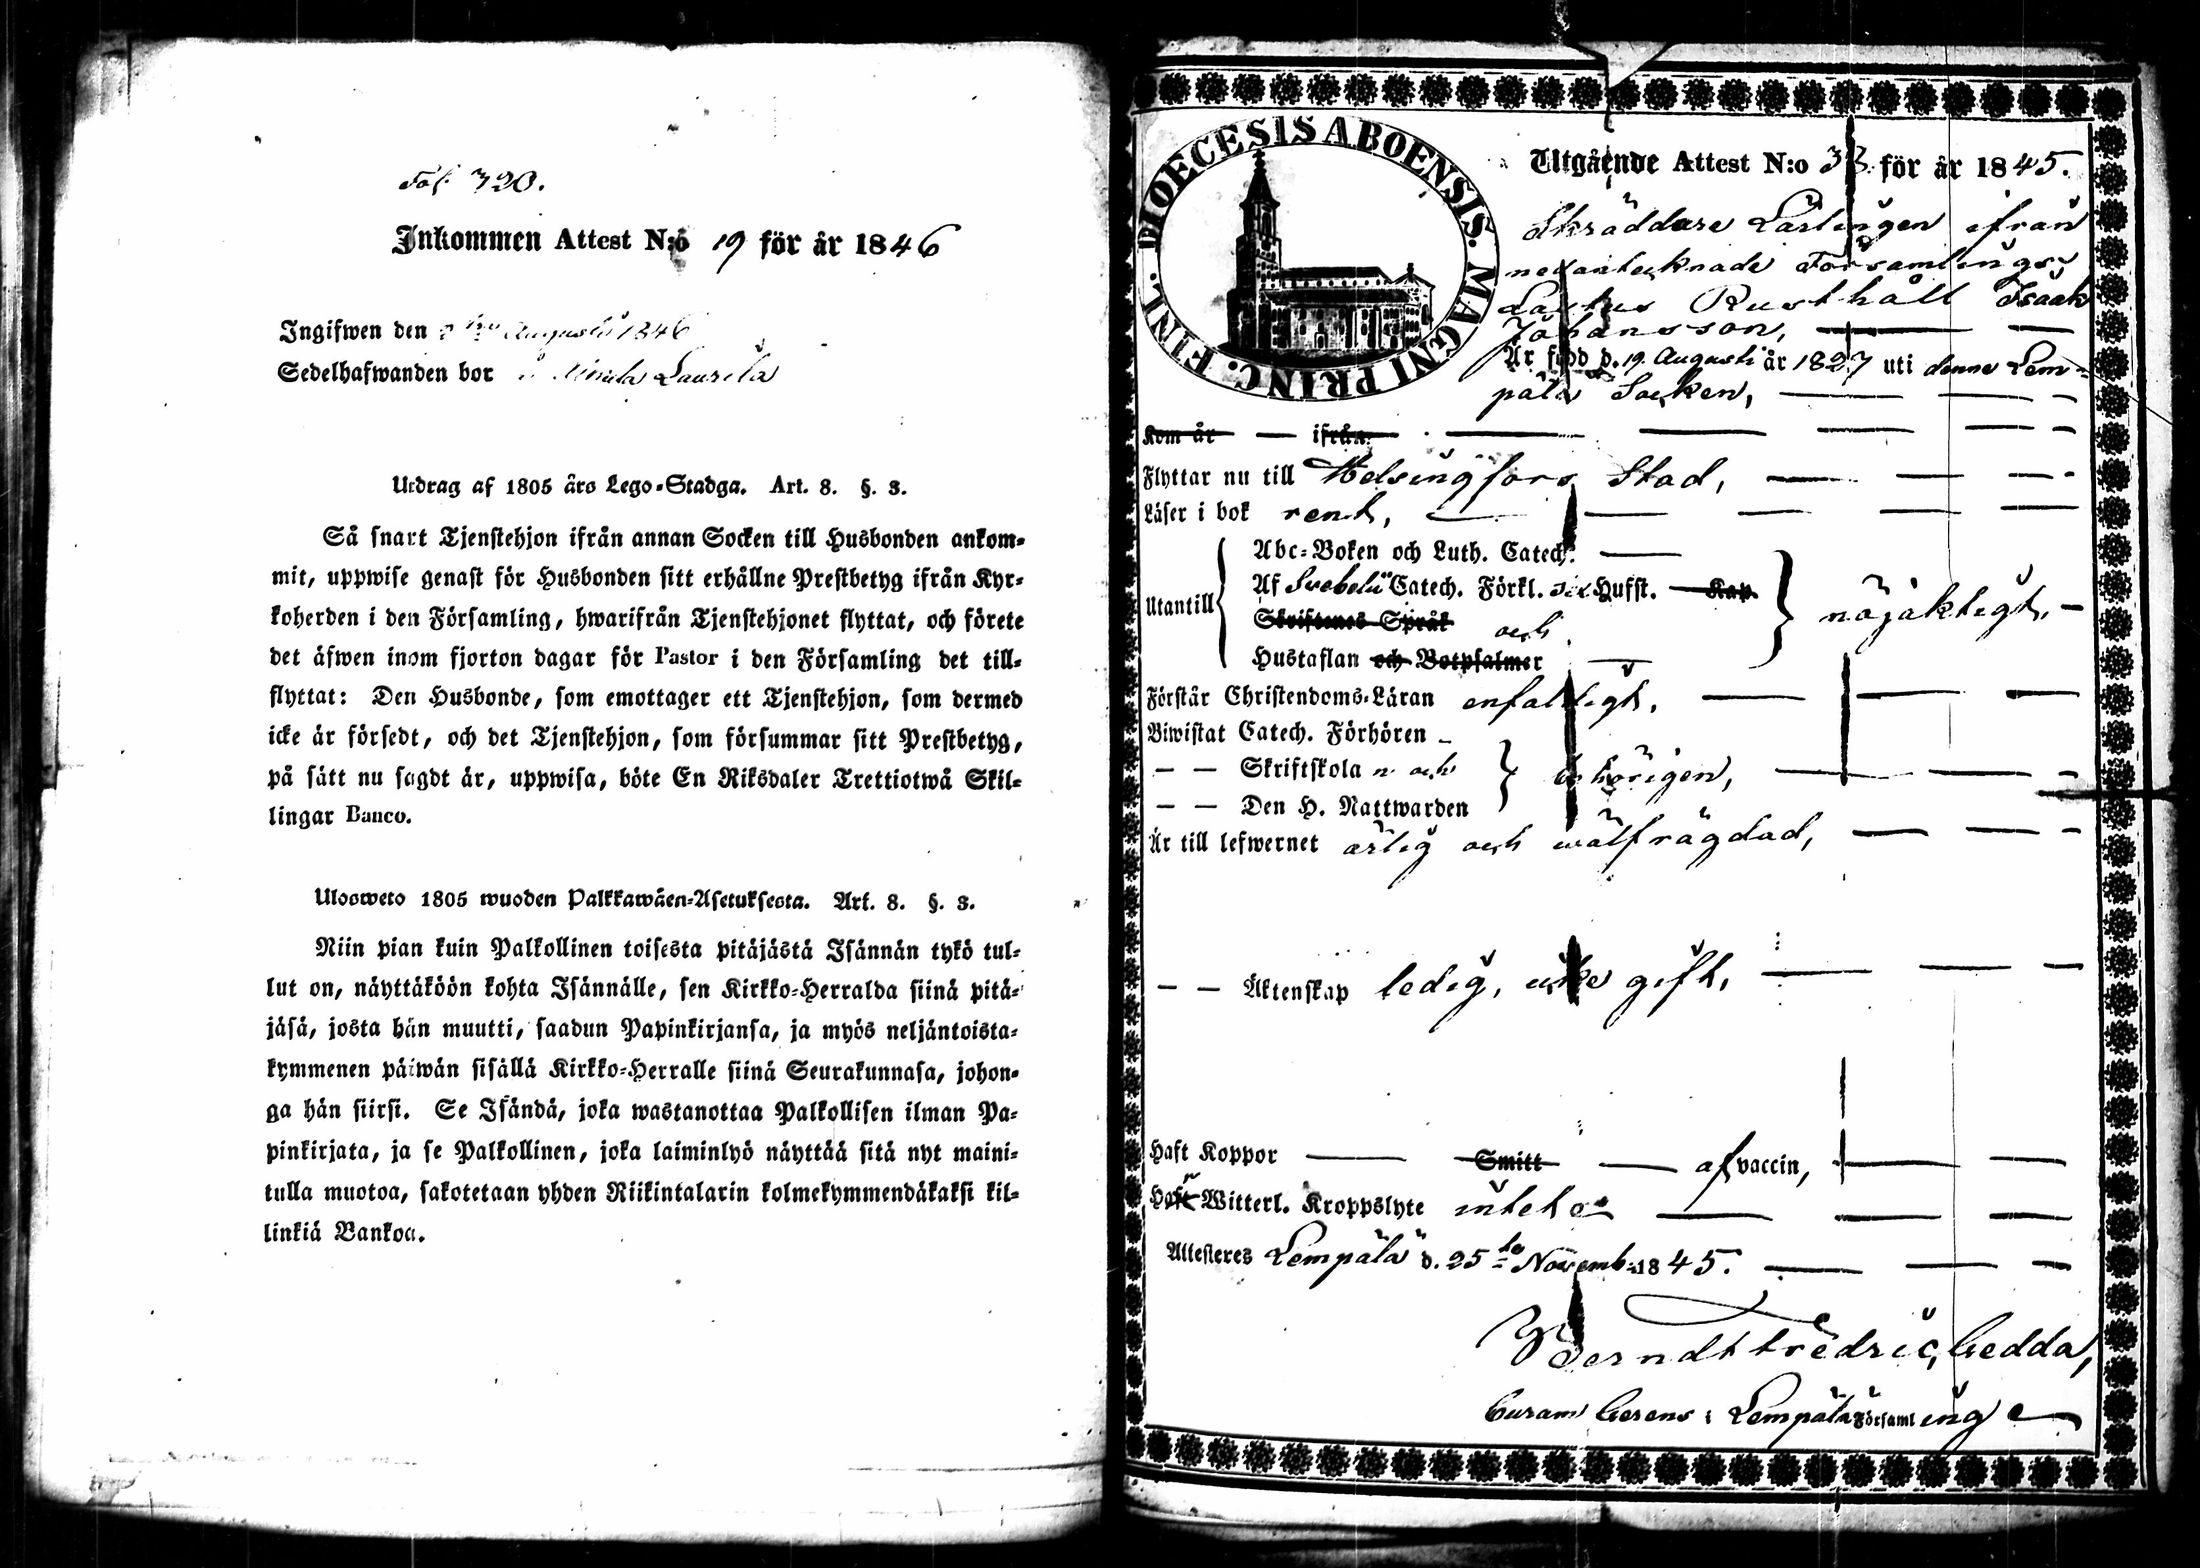 Fol. 320.
Inkommen Attest N:o 19 för år 1846
Ingifwen den Augusti 1846
Sedelhafwanden bor Laurila
Utdrag af 1805 års Lego-Stadga. Art. 8. §. 3.
Så snart Tjenstehjon ifrån annan Socken till Husbonden ankom-
mit, uppwise genast för Husbonden sitt erhållne Prestbetyg ifrån Kyr-
koherden i den Församling, hwarifrån Tjenstehjonet flyttat, och förete
det äfwen inom fjorton dagar för Pastor i den Församling det till-
flyttat: Den Husbonde, som emottager ett Tjenstehjon, som dermed
icke är försedt, och det Tjenstehjon, som försummar sitt Prestbetyg,
på sätt nu sagdt är, uppwisa, böte En Riksdaler Trettiotwå Skil-
lingar Banco.
Ulosweto 1805 wuoden Palkkawäen-Asetuksesta. Art. 8. §. 3.
Niin pian kuin Palkollinen toisesta pitäjästä Isännän tykö tul-
lut on, näyttäköön kohta Isännälle, sen Kirkko-Herralda siinä pitä-
jäsä, josta hän muutti, saadun Papinkirjansa, ja myös neljäntoista-
kymmenen päiwän sisällä Kirkko-Herralle siinä Seurakunnasa, johon-
ga hän siirsi. Se Isändä, joka wastanottaa Palkollisen ilman Pa-
pinkirjata, ja se Palkollinen, joka laiminlyö näyttää sitä nyt maini-
tulla muotoa, sakotetaan yhden Riikintalarin kolmekymmendäkaksi kil-
linkiä Bankoa.
DIOECESIS ABOENSIS. MAGNI PRINC. FINL.
Utgående Attest N:o 33 för år 1845.
Skräddare Lärlingen ifrån
nedantecknade Församlings
Rusthåll Isaak
Johansson,
Är född d. 19 Augusti år 1827 uti denne Lem-
pälä Socken,
Kom år ifrån
Flyttar nu till Helsingfors Stad,
Läser i bok rent,
Utantill
Abc-Boken och Luth. Catech.
Af Svebelii Catech. Förkl. Hufst. Kap.
Skriftenes Språk och
Hustaflan och Botpsalmer
nöjaktigt,
Förstår Christendoms-Läran enfaldigt.
Biwistat Catech. Förhören
— — Skriftskola och
— — Den H. Nattwarden
behörigen,
Är till lefwernet ärlig och wälfrägdad,
— — Äktenskap ledig, icke gift,
Haft Koppor Smitt af vaccin,
Haft Witterl. Kroppslyte intet
Attesteres Lempälä d. 25te Novemb. 1845.
Berndt Fredric Gedda,
Curam Gerens i Lempälä Församling